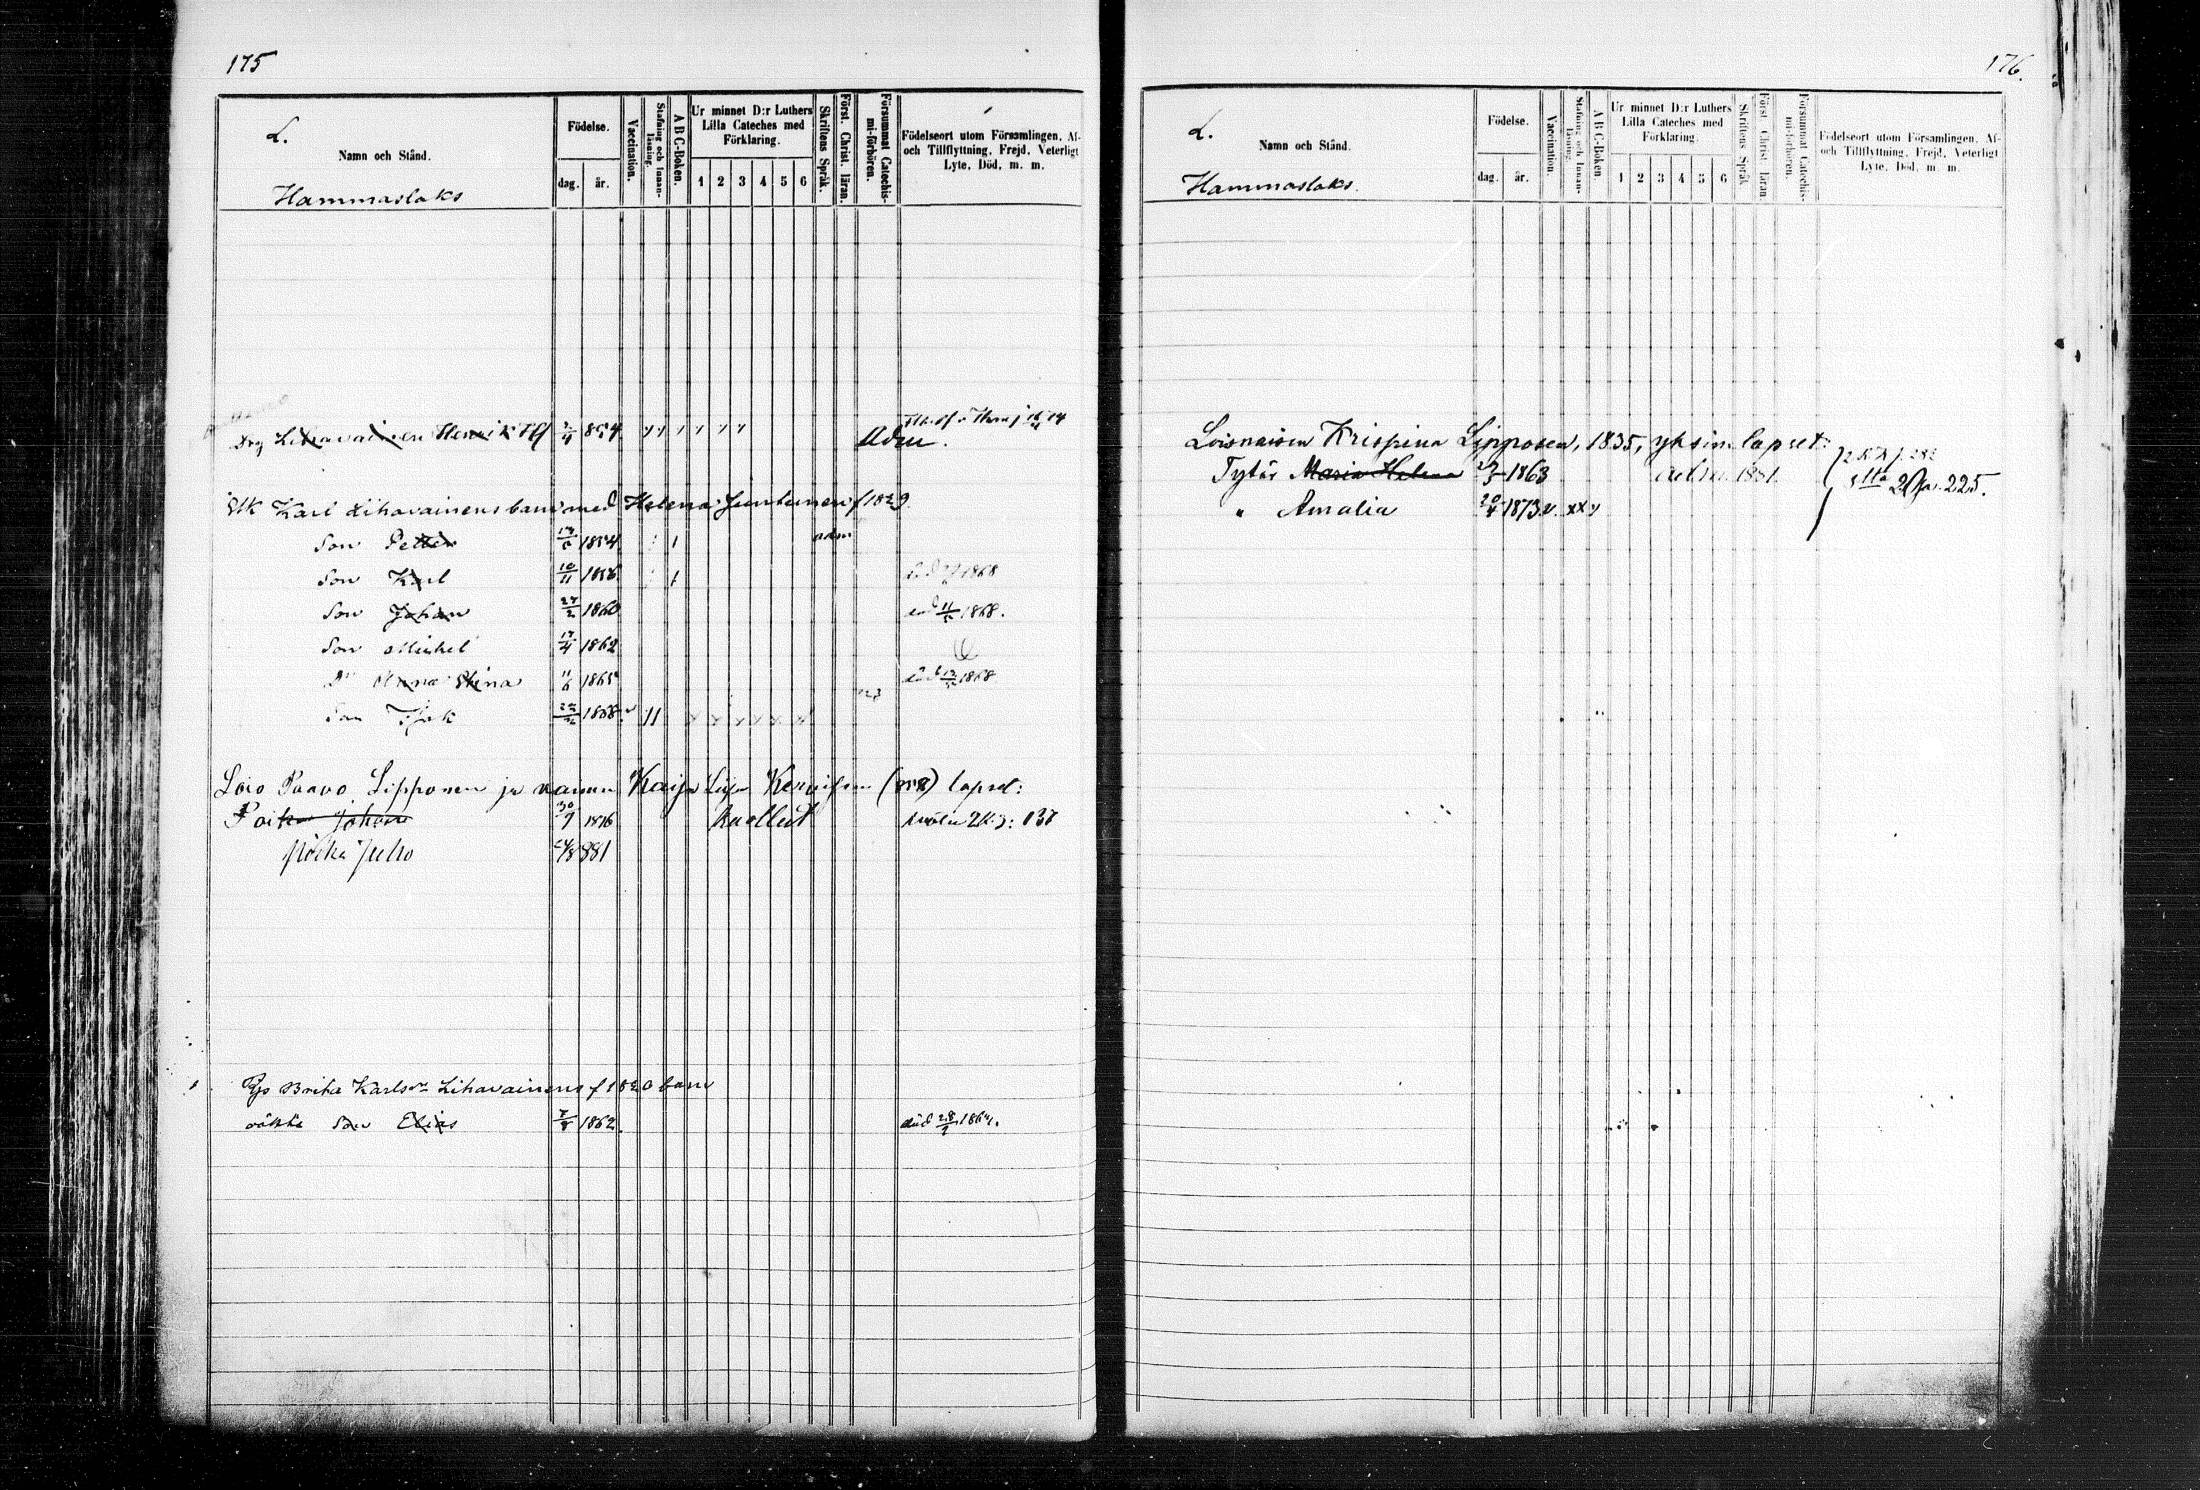 175
L.
Namn och Stånd.
Hammaslaks
Födelse.
dag. år.
Vaccination.
Stafning och Innanläsning.
A B C-Boken.
Ur minnet D:r Luthers Lilla Cateches med Förklaring.
1 2 3 4 5 6
Skriftens Språk.
Först. Christ. läran.
Försummat Catechismi-förhören.
Födelseort utom Församlingen, Af- och Tillflyttning, Frejd, Veterligt Lyte, Död, m. m.
Drg Lihavainen Henrik 2/4 854 Adm.
Karl Lihavainens barn med Helena Juntunen f 1829
Son Petter 17/5 1854 adm
Son Karl 10/11 1856 död 1868
Son Johan 27/2 1860 död 11/5 1868.
Son Michel 17/4 1862
Dr Anna Stina 11/6 1865 död 1868
Son Isak 1868
Lois Paavo Lipponen ja vaimon Kaija Liisa (858) lapset:
Poika Johan 30/9 1876 kuollut 137
poika Juho 881
Brita Karlsdr Lihavainens f 1820 barn
oäkta Son Elias 7/8 1862. död 28/9 1864.
176.
L.
Namn och Stånd.
Hammaslaks.
Födelse.
dag. år.
Vaccination.
Stafning och Innanläsning.
A B C-Boken
Ur minnet D:r Luthers Lilla Cateches med Förklaring.
1 2 3 4 5 6
Skriftens Språk.
Först. Christ. läran.
Försummat Catechismi-förhören.
Födelseort utom Församlingen, Af- och Tillflyttning, Frejd, Veterligt Lyte, Död, m. m.
Loisnaisen Krispina Lipposen, 1835, yksin. lapset:
Tytär Maria Helena 1863 adm. 1881. 225.
" Amalia 20/4 1873 v. xx